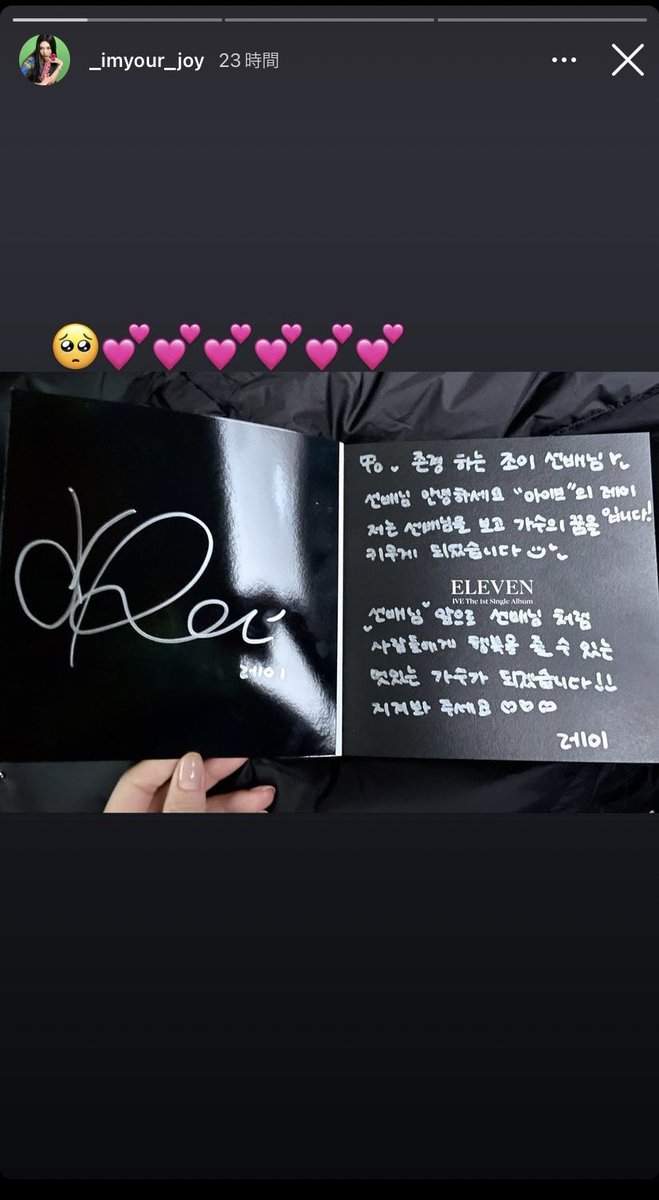 _imyour_joy 23時間
🥺💕💕💕💕💕💕
Rei
레이
To. 존경 하는 조이 선배님
선배님 안녕하세요 "아이브"의 레이
입니다!
저는 선배님을 보고 가수의 꿈을
키우게 되었습니다
ELEVEN
IVE The 1st Single Album
"선배님" 앞으로 선배님 처럼
사람들에게 행복을 줄 수 있는
멋있는 가수가 되겠습니다!!
지켜봐 주세요 ♡♡♡
레이